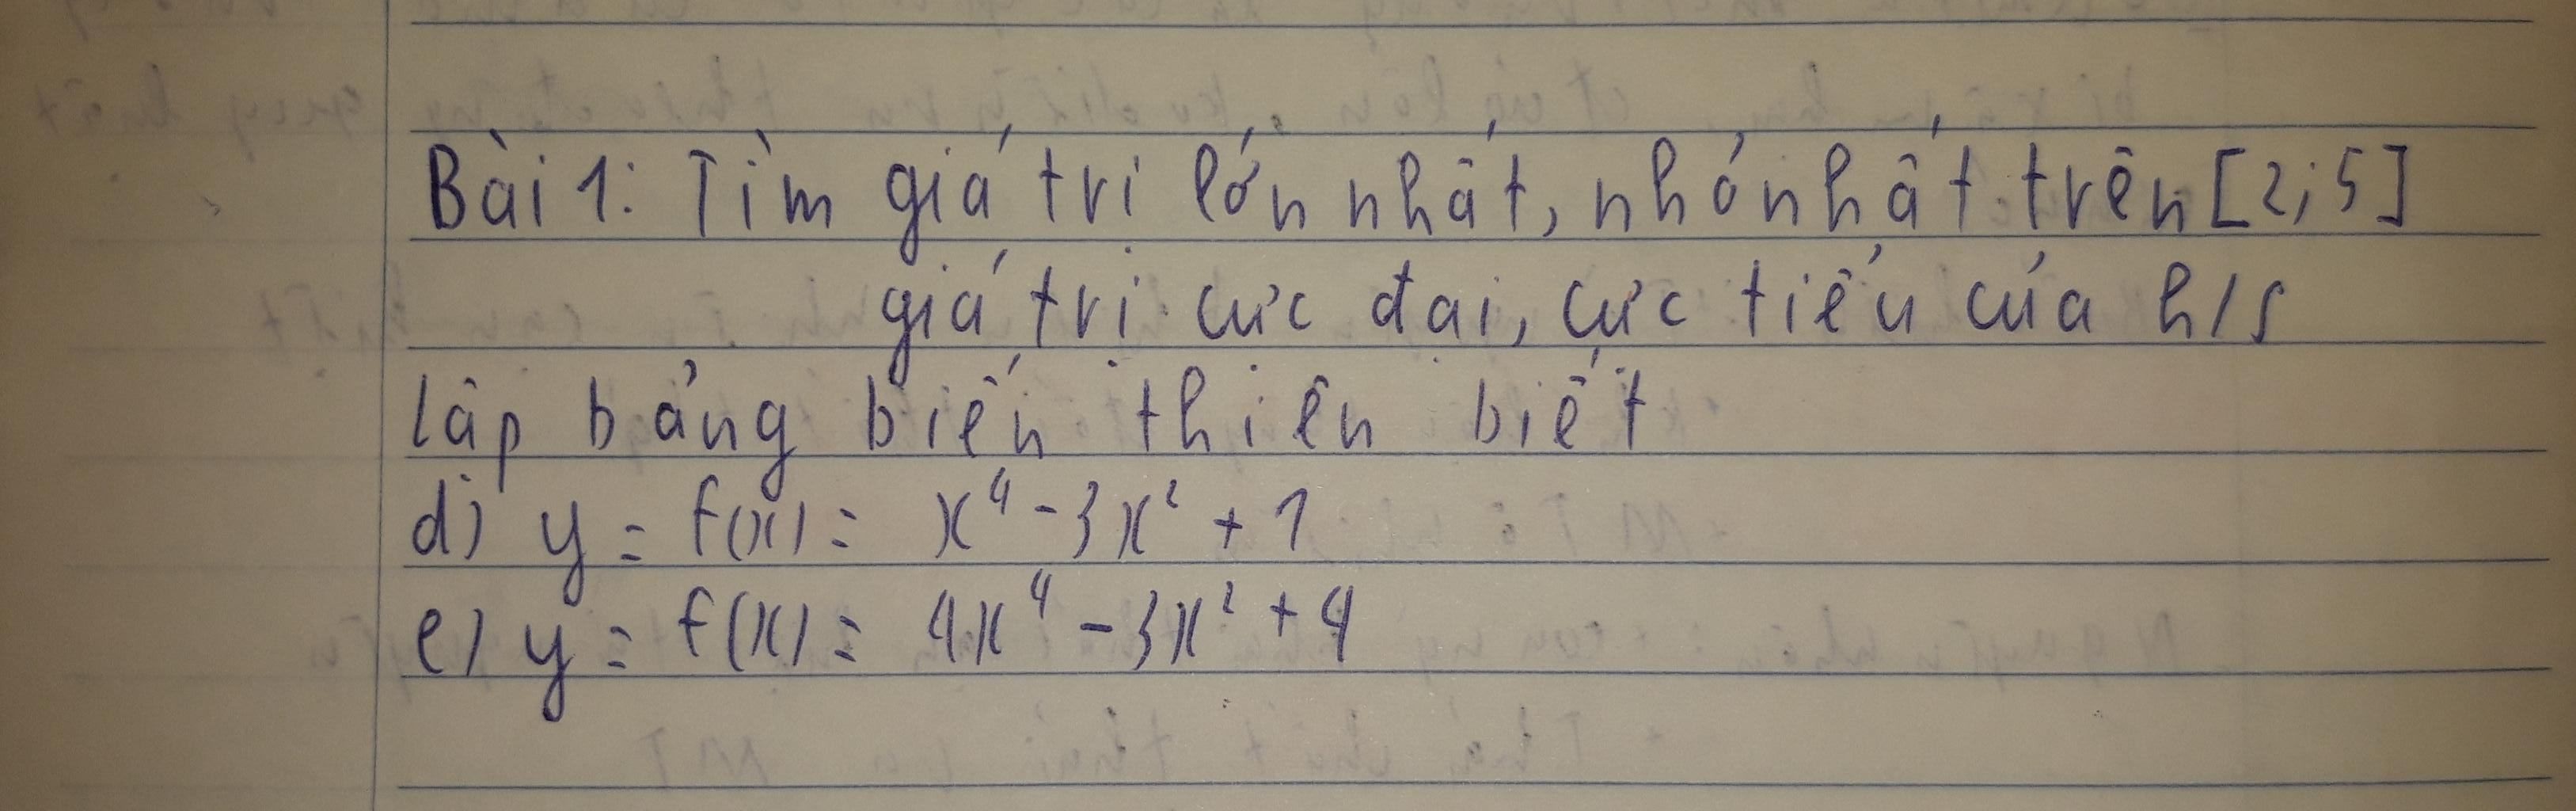 Bài 1: Tìm giá trị lớn nhất, nhỏ nhất trên [2; 5]
giá trị cực đại, cực tiểu của h/s
lập bảng biến thiên biết
d) y = f(x) = x⁴ - 3x² + 1
e) y = f(x) = 4x⁴ - 3x² + 4